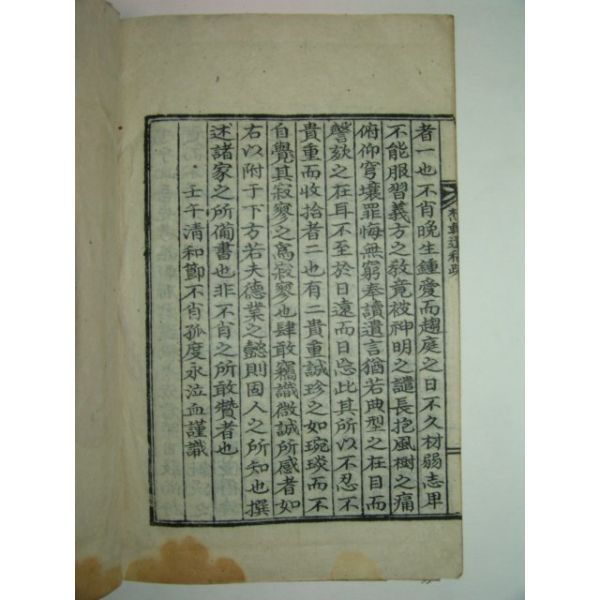 者一也不肖晚生鍾愛而趨庭之日不久材弱志卑
不能服習義方之敎竟被神明之譴長抱風樹之痛
俯仰穹壤罪悔無窮奉讀遺言猶若典型之在目而
謦欬之在耳不至於日遠而日忘此其所以不忍不
貴重而收拾者二也有二貴重誠珍之如琬琰而不
自覺其寂寥之爲寂寥也肆敢竊識微誠所感者如
右以附于下方若夫德業之懿則固人之所知也撰
述諸家之所備書也非不肖之所敢贊者也
壬午淸和節不肖孤度永泣血謹識